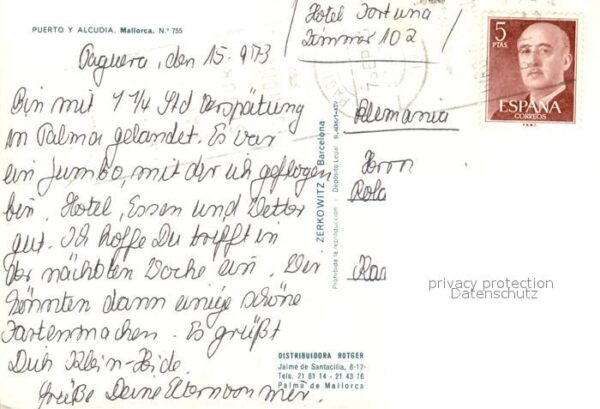 Hotel Fortuna
Zimmer 102
PUERTO Y ALCUDIA. Mallorca. N.º 755
Paguera, den 15.9.73
Bin mit 1 1/4 Std Verspätung
in Palma gelandet. Es war
ein Jumbo, mit der ich geflogen
bin. Hotel, Essen und Wetter
gut. Ich hoffe Du trifft in
der nächsten Woche ein. Wir
könnten dann einige schöne
Tarten machen. Es grüßt
Dich Klein-Heide.
Grüße Deine Eltern von mir.
5
PTAS
ESPAÑA
CORREOS
Alemania
Herrn
Rola
Kar
ZERKOWITZ - Barcelona
Prohibida la reproducción - Depósito Legal
privacy protection
Datenschutz
DISTRIBUIDORA ROTGER
Jaime de Santacilia, 8-12-
Tels. 21 81 14 - 21 43 76
Palma de Mallorca